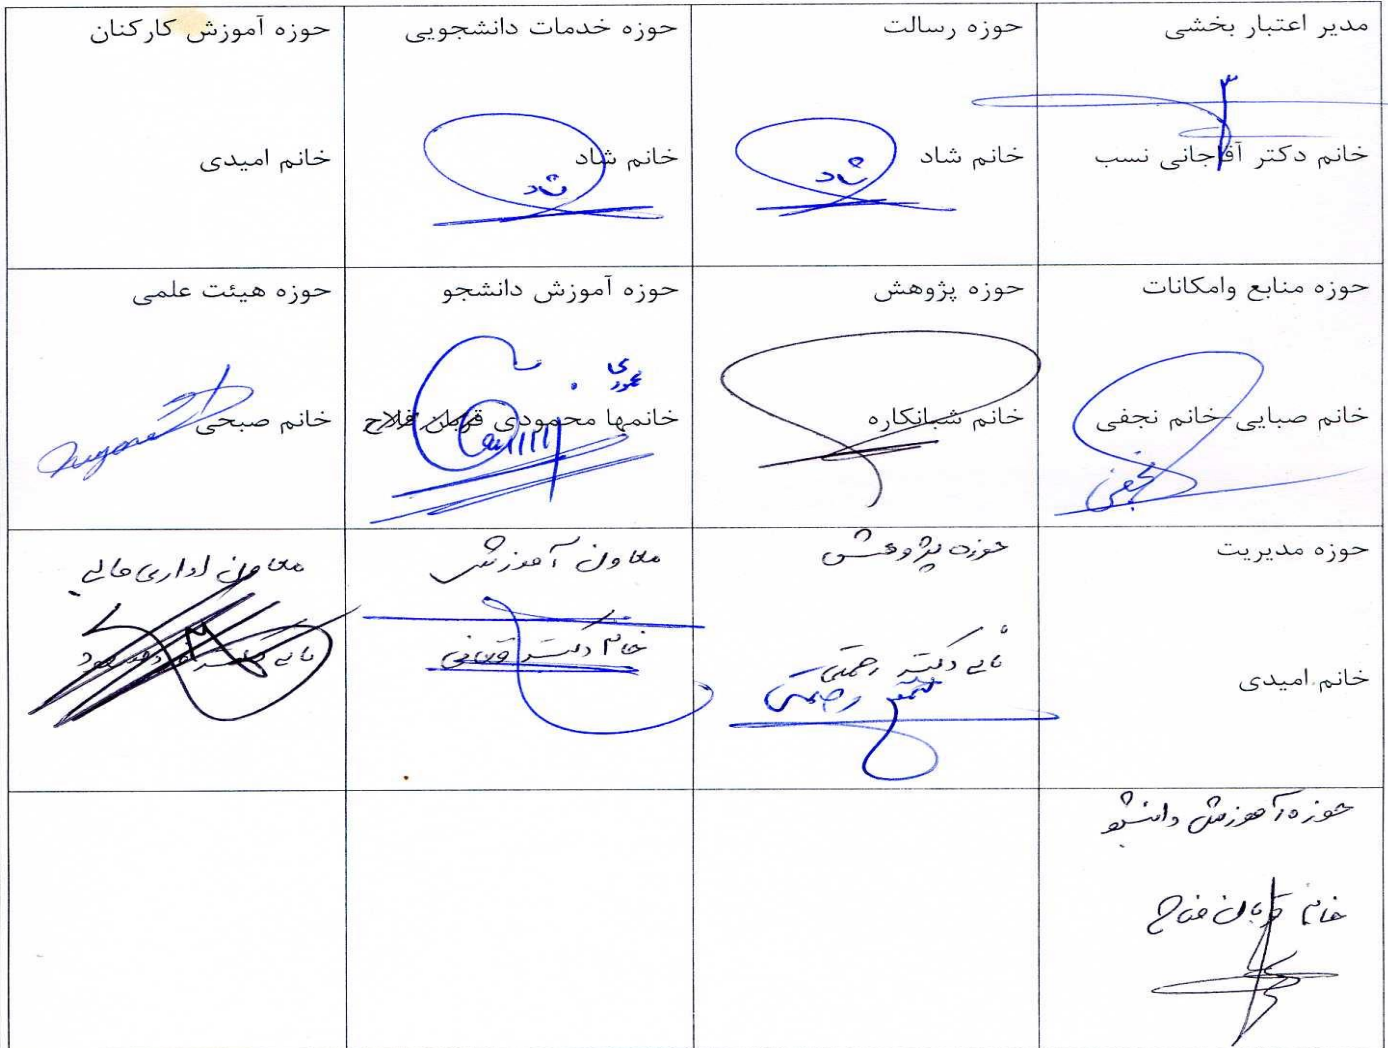 مدیر اعتبار بخشی
خانم دکتر آقاجانی نسب
حوزه رسالت
خانم شاد
شاد
حوزه خدمات دانشجویی
خانم شاد
شاد
حوزه آموزش کارکنان
خانم امیدی
حوزه منابع وامکانات
خانم صبایی خانم نجفی
نجفی
حوزه پژوهش
خانم شبانکاره
حوزه آموزش دانشجو
خانمها محمودی قربان فلاح
حوزه هیئت علمی
خانم صبحی
حوزه مدیریت
خانم امیدی
حوزه پژوهش
دکتر رحمتی
رحمتی
معاون آموزشی
خانم دکتر
معاون اداری مالی
حوزه آموزش دانشجو
خانم قربان فلاح